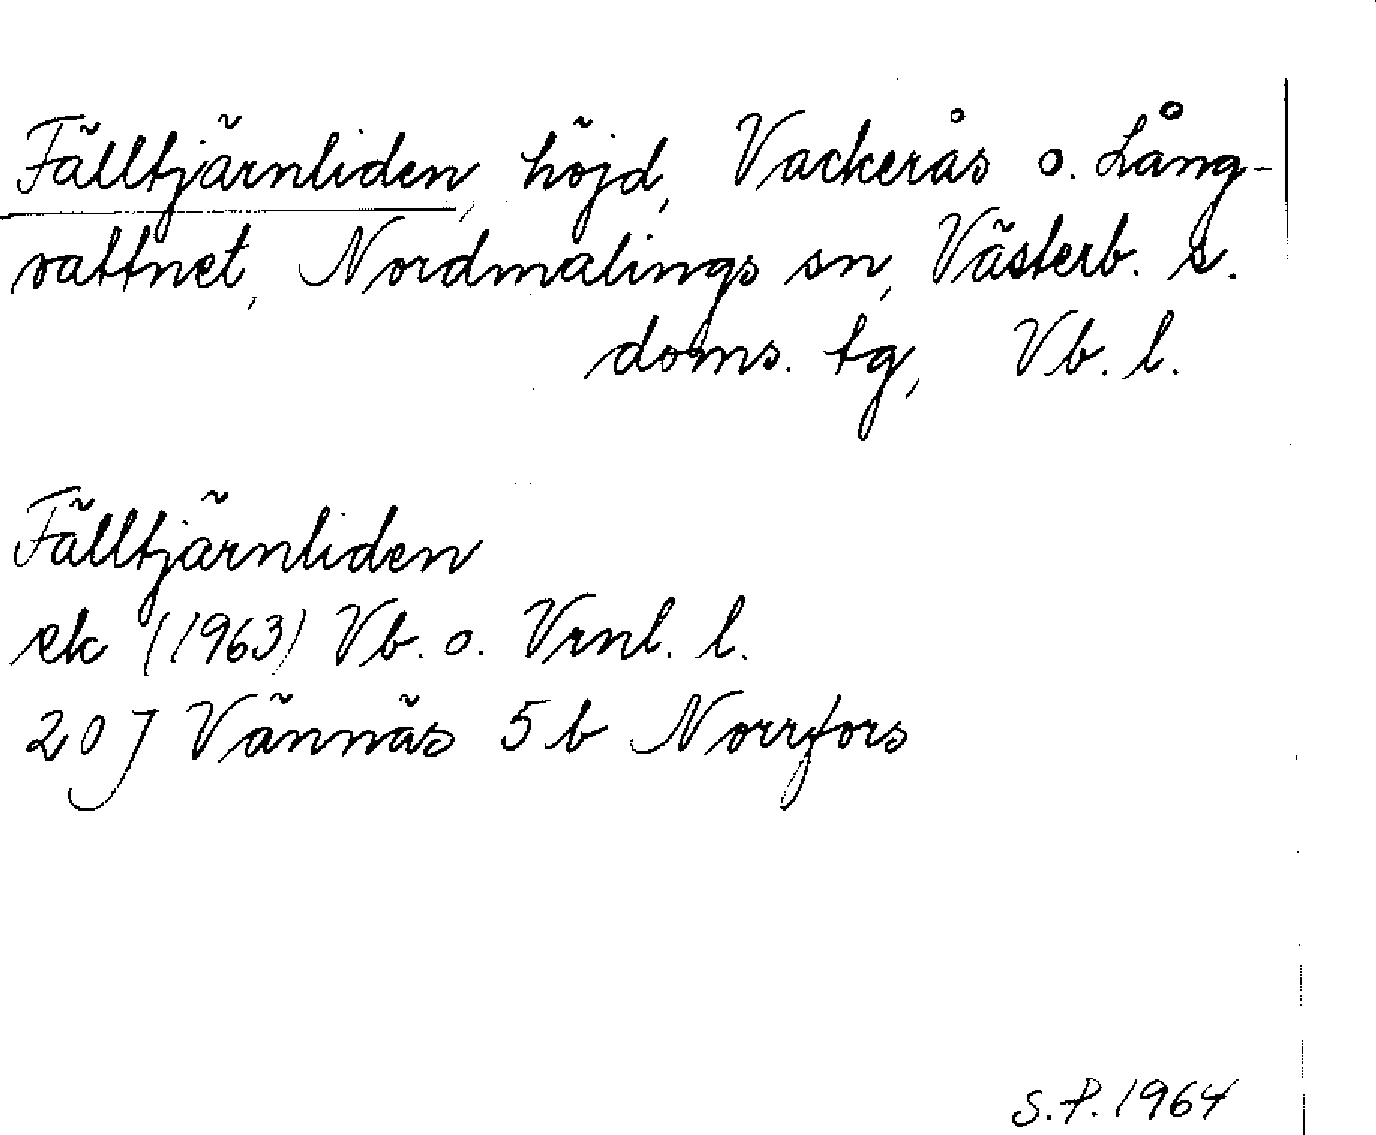 Fälltjärnliden, höjd, Vackerås o. Lång-
vattnet, Nordmalings sn, Västerb. s.
doms. tg, Vb. l.
Fälltjärnliden
ek (1963) Vb. o. Vrnl. l.
20 J Vännäs 5 b Norrfors
S.P. 1964